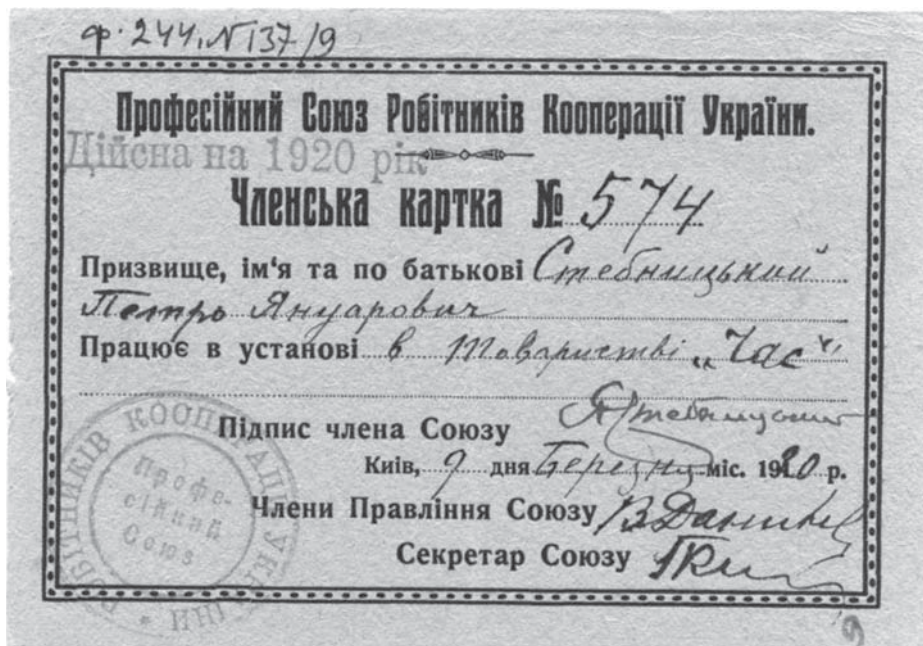 ф. 244, N 137/9
Професійний Союз Робітників Кооперації України.
Дійсна на 1920 рік
Членська картка № 574
Призвище, ім'я та по батькові Стебницький
Петро Януарович
Працює в установі в Товаристві „Час"
Підпис члена Союзу ПСтебницький
Київ, 9 дня Березня міс. 1920 р.
Члени Правління Союзу
Секретар Союзу
РОБІТНИКІВ КООПЕРАЦІЇ УКРАЇНИ *
Профе-
сійний
Союз
9